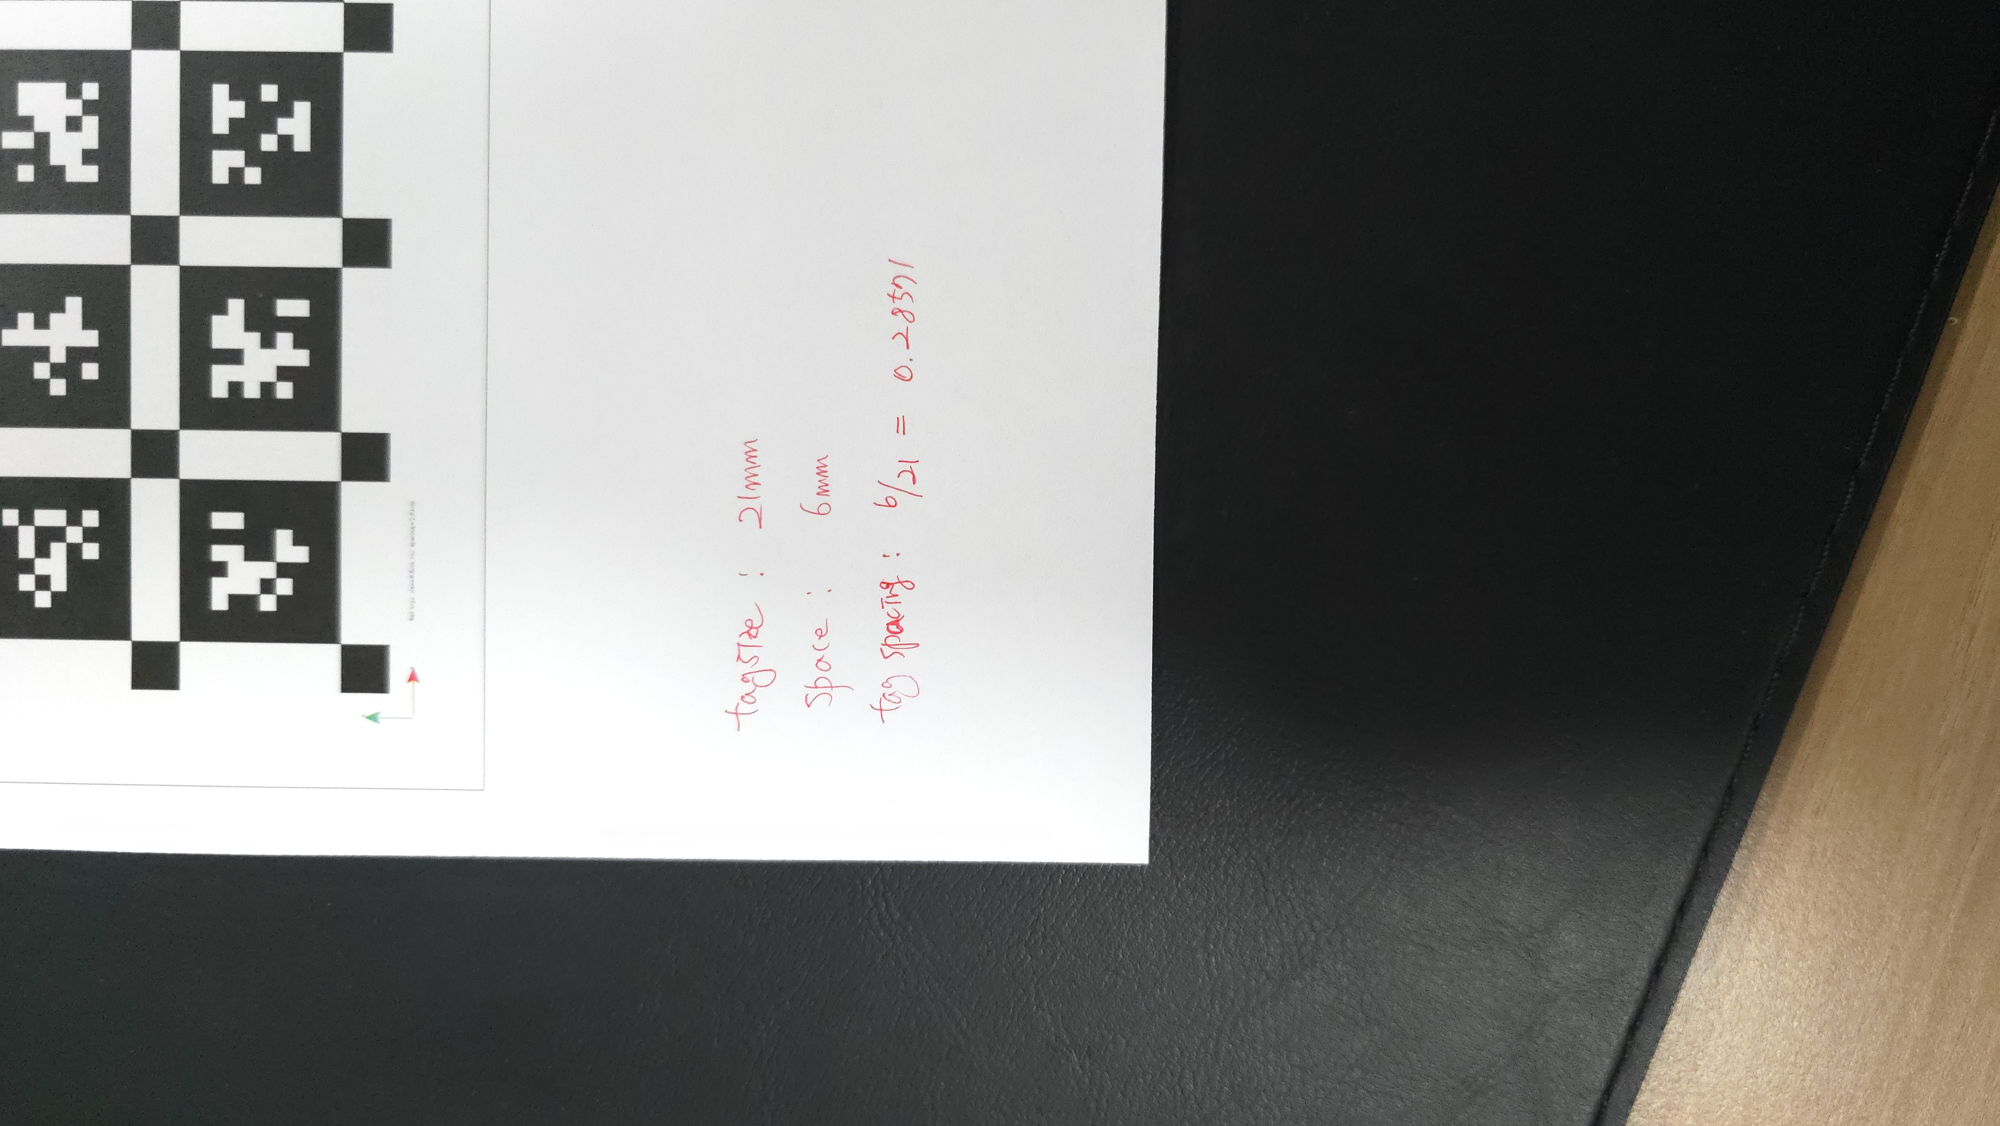 tagsize : 21mm
space : 6mm
tag spacing : 6/21 = 0.28571